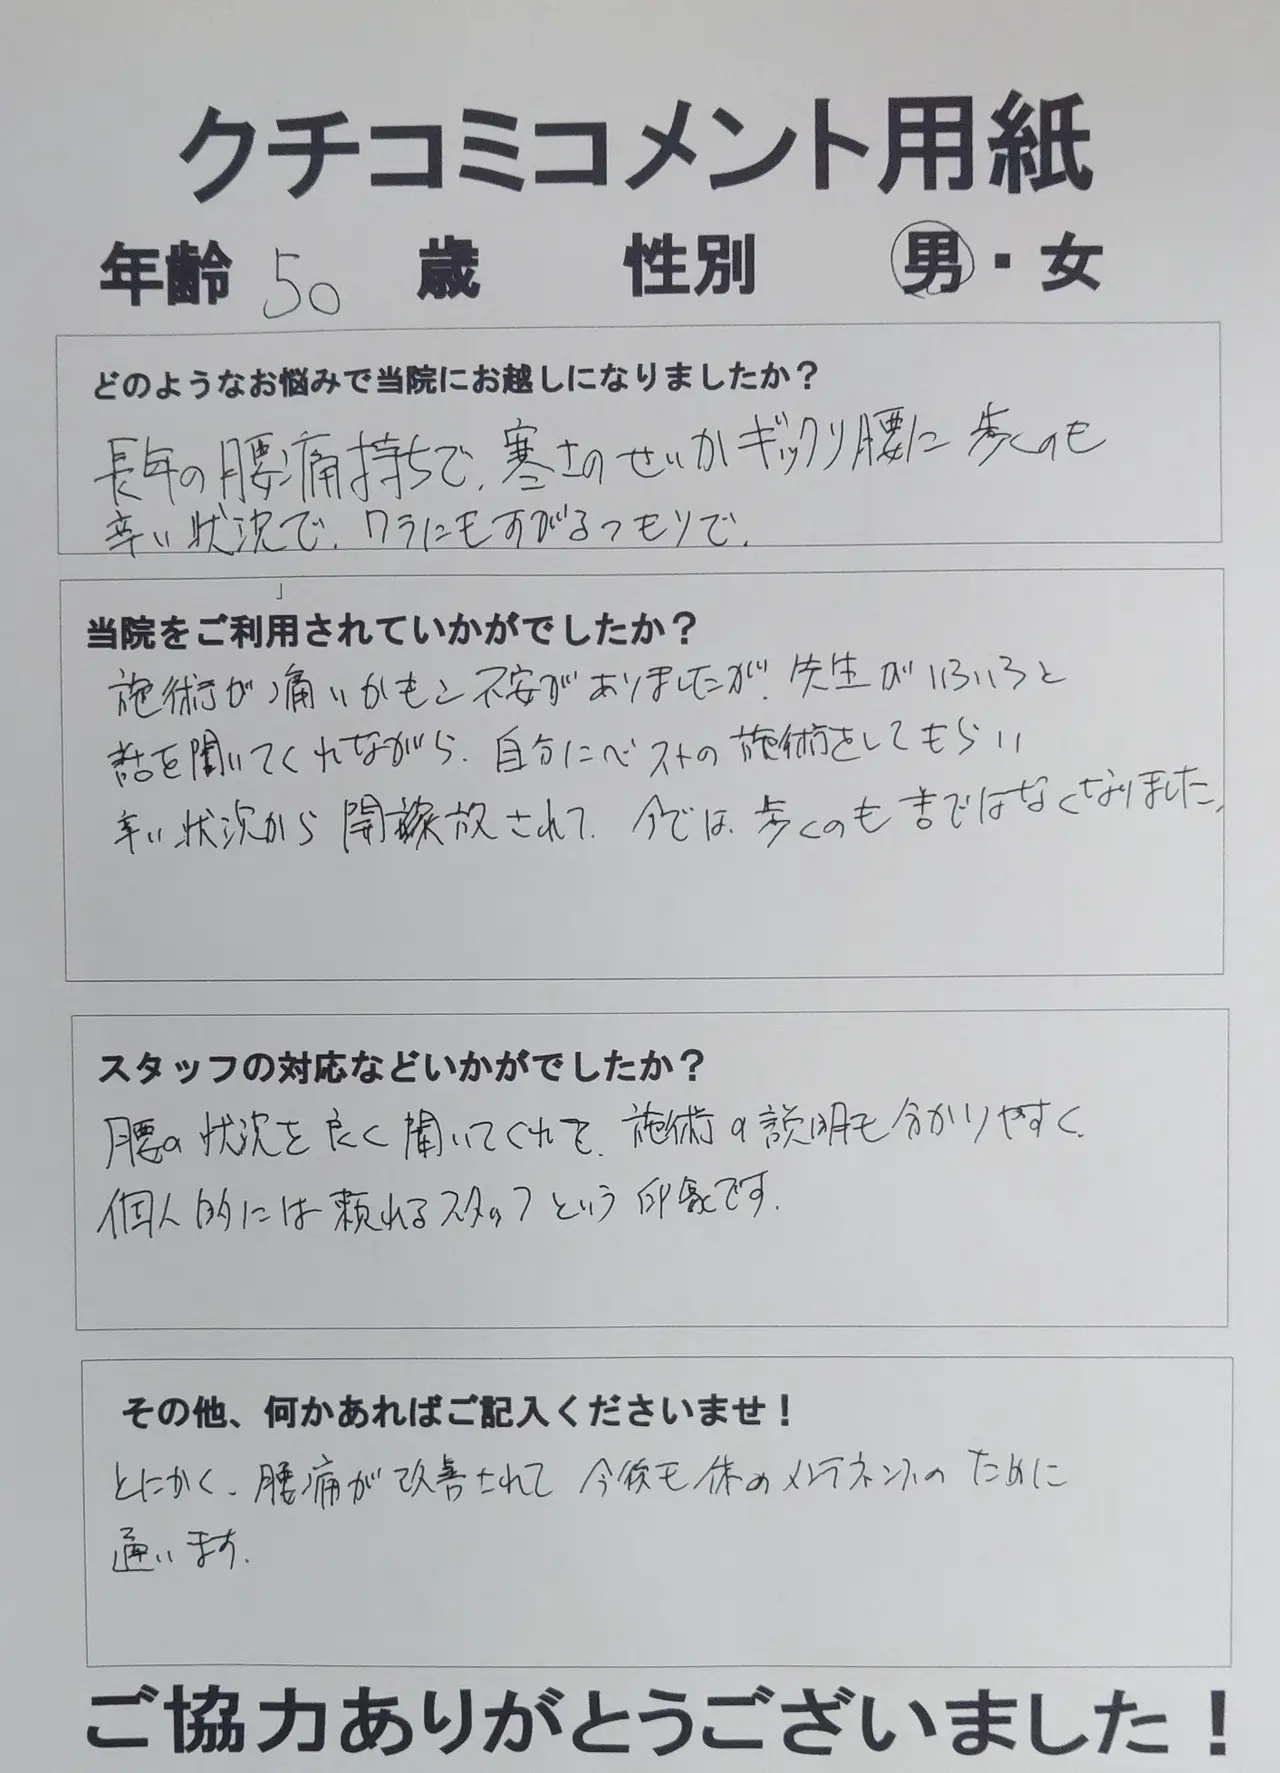 クチコミコメント用紙
年齢 50 歳 性別 男・女
どのようなお悩みで当院にお越しになりましたか？
長年の腰痛持ちで、寒さのせいかギックリ腰に歩くのも
辛い状況で、ワラにもすがるつもりで、
当院をご利用されていかがでしたか？
施術が痛いかもと不安がありましたが、先生がいろいろと
話を聞いてくれながら、自分にベストの施術をしてもらい
辛い状況から開放されて、今では、歩くのも苦ではなくなりました。
スタッフの対応などいかがでしたか？
腰の状況を良く聞いてくれて、施術の説明も分かりやすく、
個人的には頼れるスタッフという印象です。
その他、何かあればご記入くださいませ！
とにかく、腰痛が改善されて今後も体のメンテネンスのために
通います。
ご協力ありがとうございました！